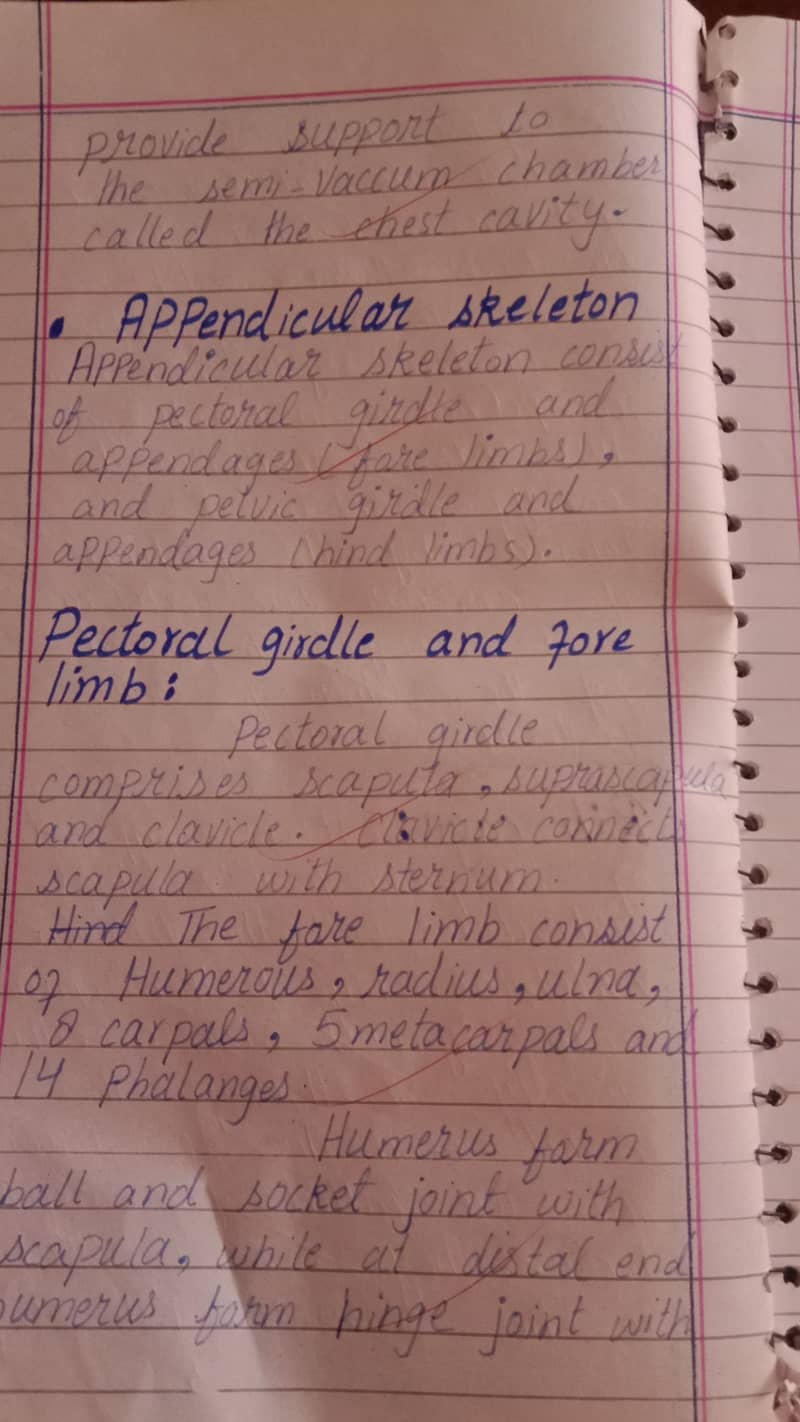 provide support to
the semi-vaccum chamber
called the chest cavity.
• Appendicular skeleton
Appendicular skeleton consist
of pectoral girdle and
appendages (fore limbs),
and pelvic girdle and
appendages (hind limbs).
Pectoral girdle and fore
limb:
Pectoral girdle
comprises scapula, suprascapula
and clavicle. Clavicle connects
scapula with sternum.
Hind The fore limb consist
of Humerous, radius, ulna,
8 carpals, 5 metacarpals and
14 Phalanges.
Humerus form
ball and socket joint with
scapula, while at distal end
humerus form hinge joint with